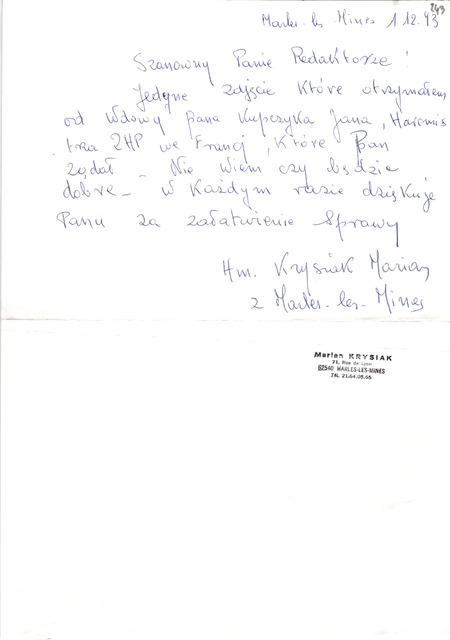 243
Marles-les Mines 1.12.93
Szanowny Panie Redaktorze!
Jedyne zdjęcie które otrzymałem
od Wdowy pana Kupczyka Jana, Harcmis
trza ZHP we Francj, które Pan
żądał – Nie wiem czy będzie
dobre – w Każdym razie dziękuję
Panu za załatwienie Sprawy
Hm. Krysiak Marian
z Marles-les-Mines
Marian KRYSIAK
71, Rue de Lyon
62540 MARLES-LES-MINES
Tél. 21.64.05.66